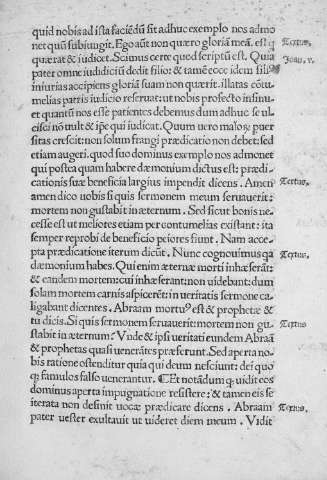 quid nobis ad ista faciēdū sit adhuc exemplo nos admo
net quū subiungit. Ego aūt non quæro gloriā meā. est q Textus.
quærat & iudicet. Scimus certe quod scriptū est. Quia Ioan. v.
pater omne iudiciū dedit filio: & tamē ecce idem
iniurias accipiens gloriā suam non quærit. illatas cōtu
melias patris iudicio reseruat: ut nobis profecto insinu
et quantū nos esse patientes debemus dum adhuc se ul
cisci nō uult & ip̄e qui iudicat. Quum uero maloꝝ puer
sitas crescit: non solum frangi prædicatio non debet: sed
etiam augeri. quod suo dominus exemplo nos admonet
qui postea quam habere dæmonium dictus est: prædi
cationis suæ beneficia largius impendit dicens. Amen Textus.
amen dico uobis si quis sermonem meum seruauerit:
mortem non gustabit in æternum. Sed sicut bonis ne
cesse est ut meliores etiam per contumelias existant: ita
semper reprobi de beneficio peiores fiunt. Nam acce
pta prædicatione iterum dicūt. Nunc cognouimus qa Textus.
dæmonium habes. Qui enim æternæ morti inhæserāt:
& eandem mortem: cui inhæserant: non uidebant: dum
solam mortem carnis aspicerēt: in ueritatis sermone ca
ligabant dicentes. Abraam mortuꝰ est & prophetæ &
tu dicis. Si quis sermonem seruauerit: mortem non gu Textus
stabit in æternum? Vnde & ipsi ueritati eundem Abraā
& prophetas quasi uenerātes præferunt. Sed aperta no
bis ratione ostenditur quia qui deum nesciunt: dei quo
qꝫ famulos falso venerantur. ¶Et notādum qꝫ uidit eos
dominus aperta impugnatione resistere: & tamen eis se
iterata non definit uocæ prædicare dicens. Abraam Textus.
pater uester exultauit ut uideret diem meum. Vidit